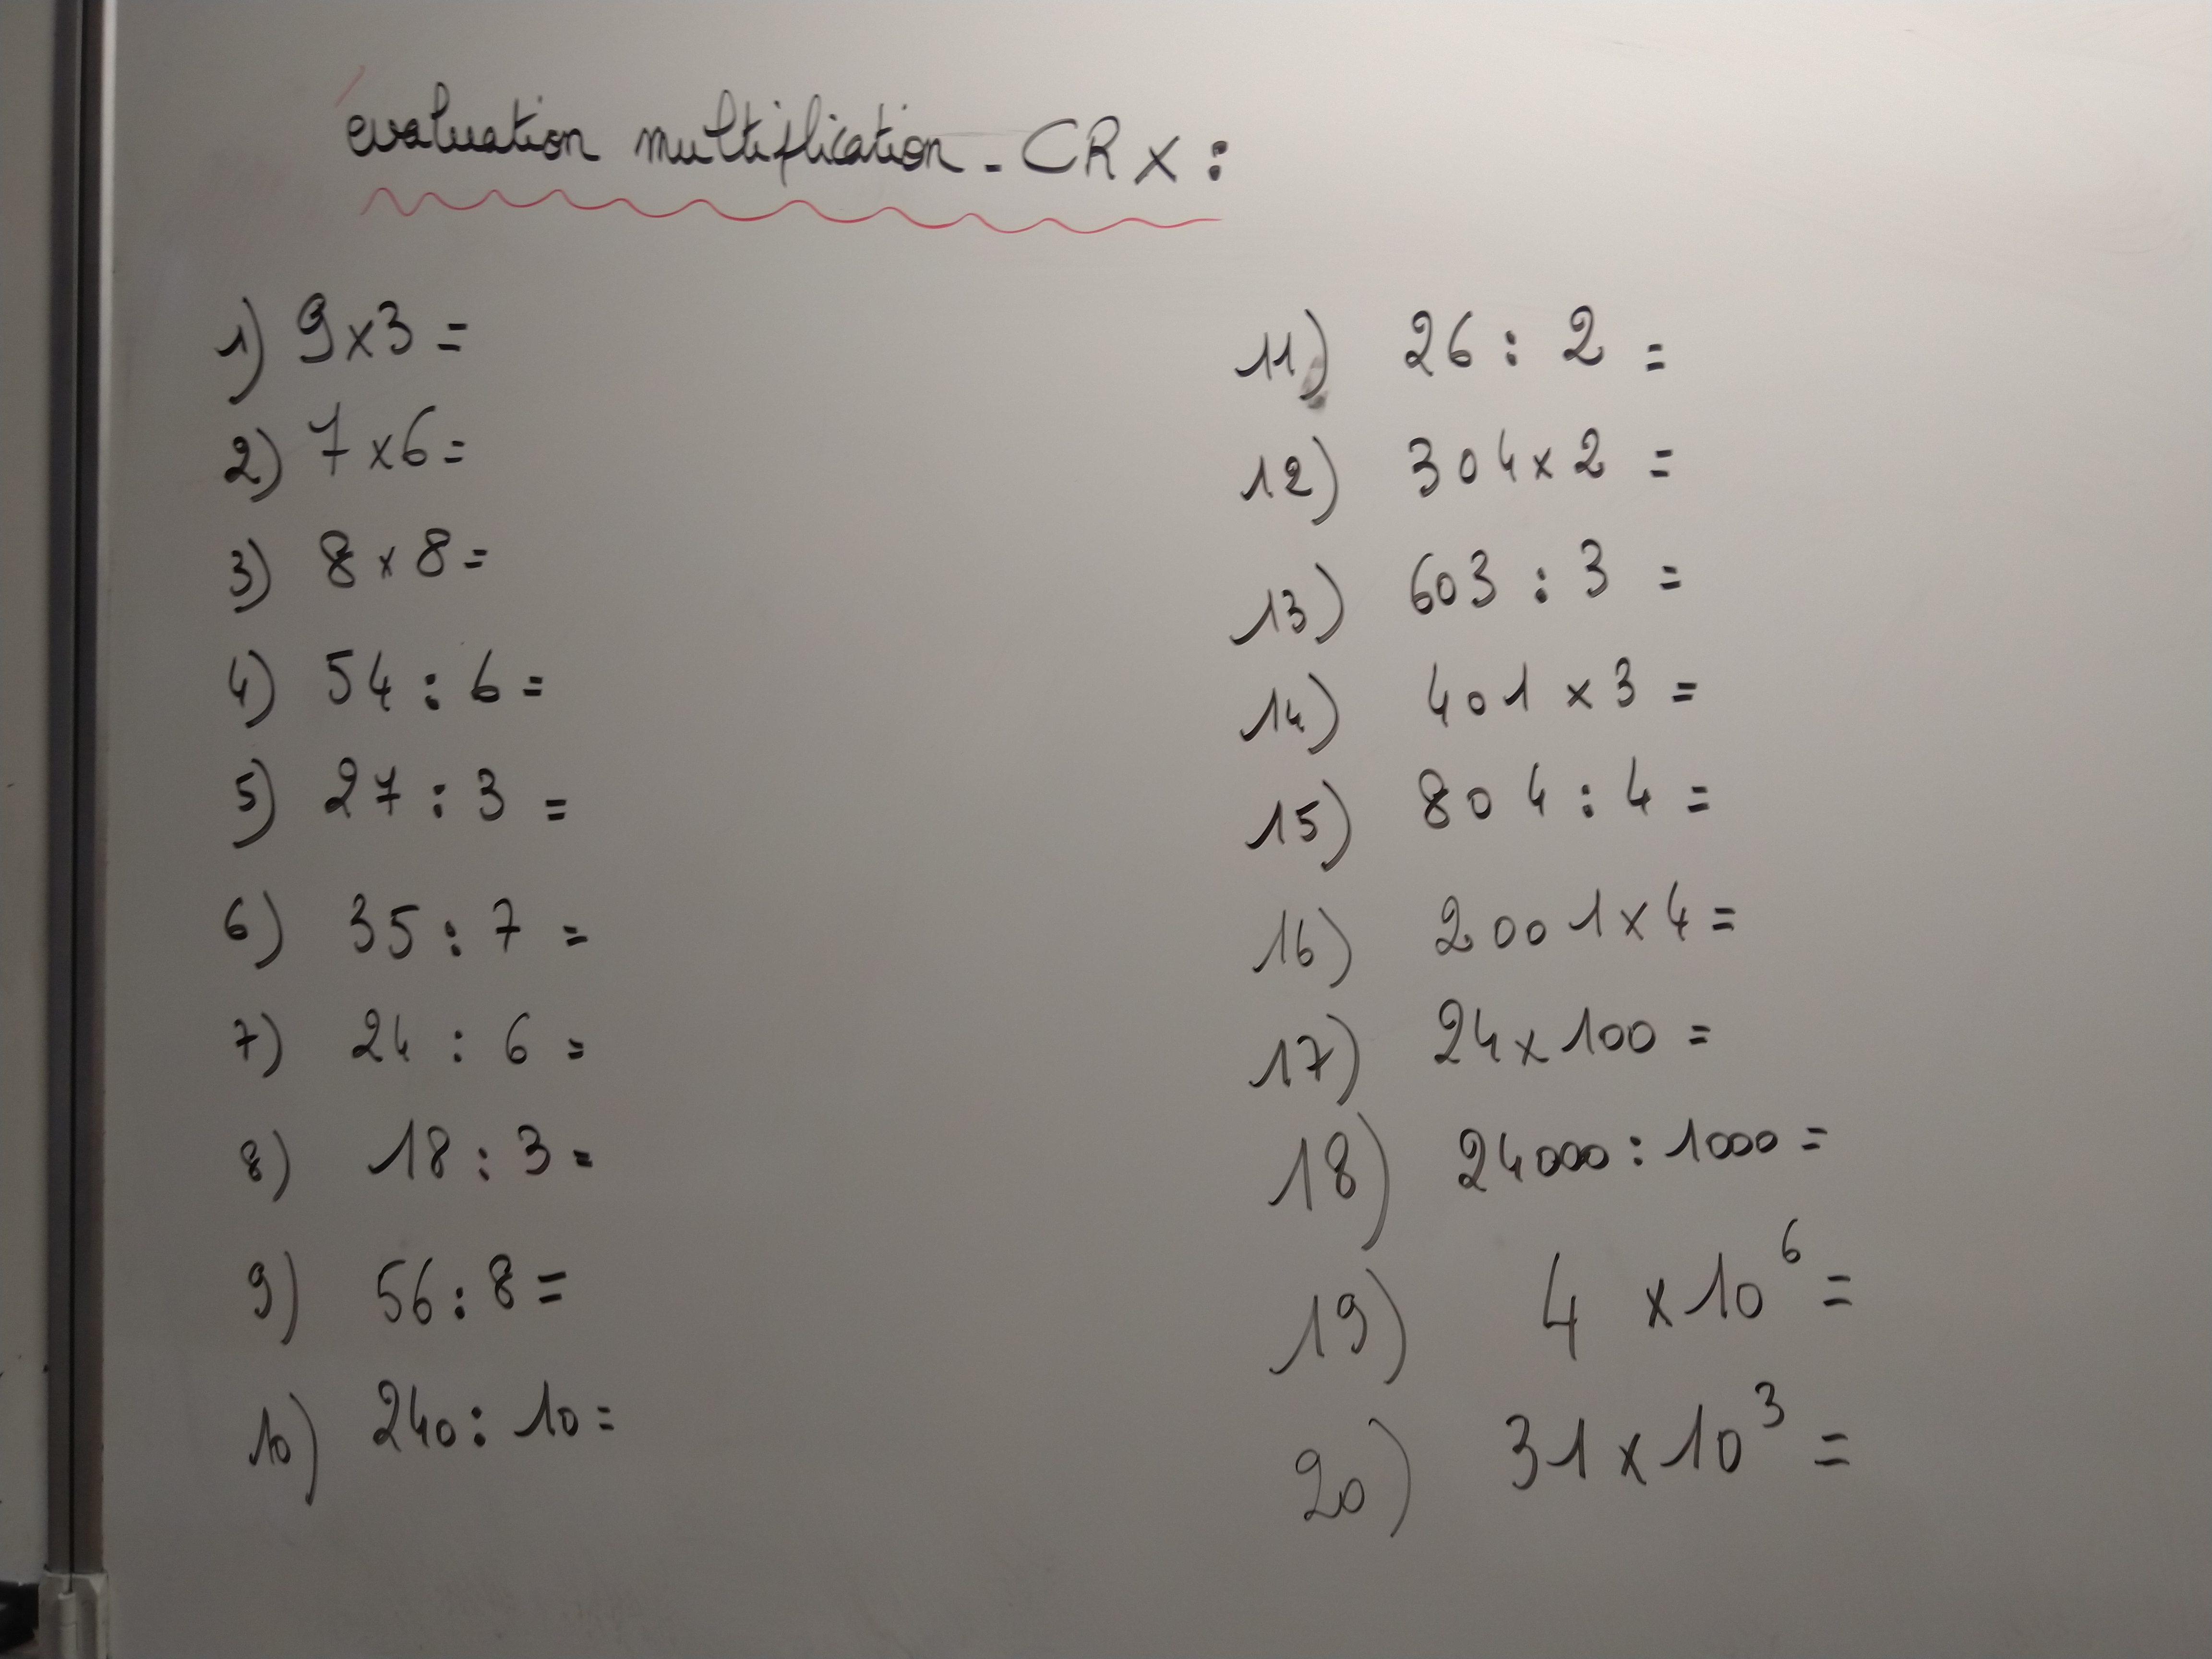 évaluation multiplication - CR x :
1) 9 x 3 =
2) 7 x 6 =
3) 8 x 8 =
4) 54 : 6 =
5) 27 : 3 =
6) 35 : 7 =
7) 24 : 6 =
8) 18 : 3 =
9) 56 : 8 =
10) 240 : 10 =
11) 26 : 2 =
12) 304 x 2 =
13) 603 : 3 =
14) 401 x 3 =
15) 804 : 4 =
16) 2001 x 4 =
17) 24 x 100 =
18) 24000 : 1000 =
19) 4 x 10⁶ =
20) 31 x 10³ =